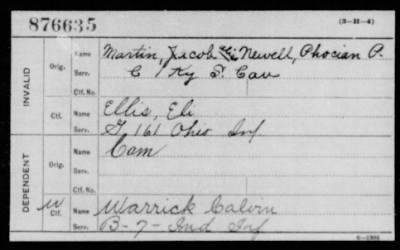 876635 (3-311-4)
INVALID
Orig.
Name Martin, Jacob Newell, Phocian P.
Serv. C 1 Ky S. Cav
Ctf. No.
Ctf.
Name Ellis, Eli
Serv. G 161 Ohio Inf.
Ctf. No.
DEPENDENT
Orig.
Name Cam
Serv.
Ctf. No.
W
Ctf.
Name Warrick Calvin
Serv. B-7-Ind Inf